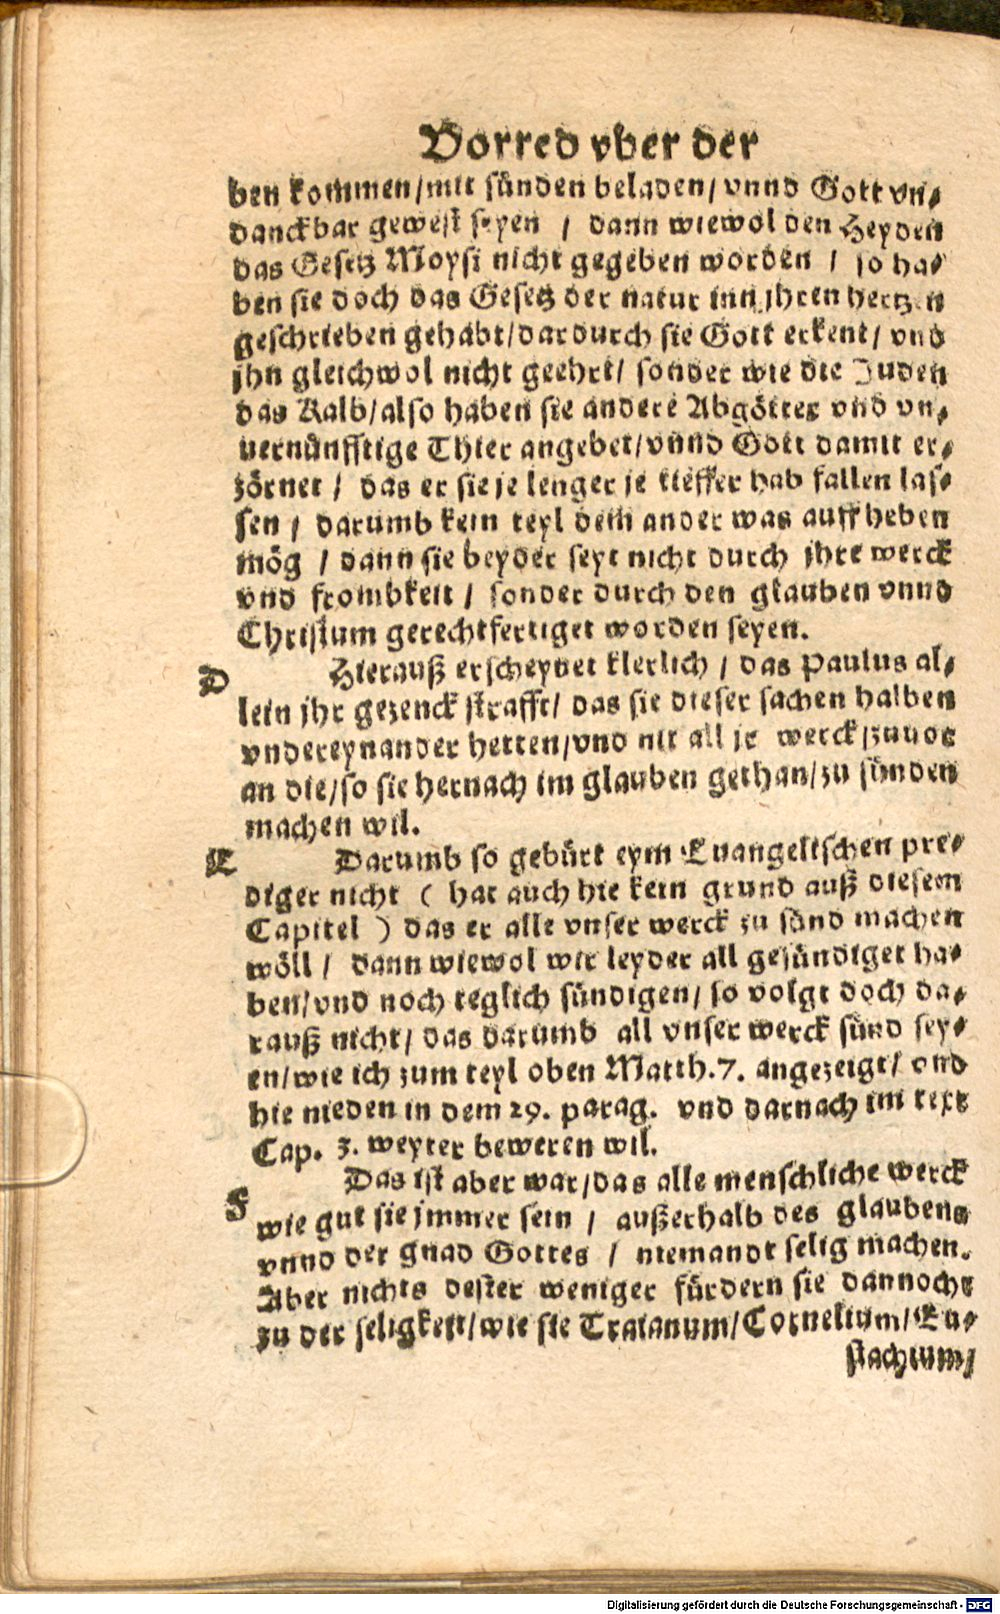 Vorred vber der
ben kommen/mit sünden beladen/ vnnd Gott vn-
danckbar gewest seyen / dann wiewol den Heyden
das Gesetz Moysi nicht gegeben worden / so ha-
ben sie doch das Gesetz der natur inn jhren hertzen
geschrieben gehabt/dardurch sie Gott erkent/ vnd
jhn gleichwol nicht geehrt/ sonder wie die Juden
das Kalb/also haben sie andere Abgötter vnd vn-
uernünfftige Thier angebet/vnnd Gott damit er-
zörnet / das er sie je lenger je tieffer hab fallen las-
sen / darumb kein teyl dem ander was auffheben
mög / dann sie beyder seyt nicht durch jhre werck
vnd frombkeit / sonder durch den glauben vnnd
Christum gerechtfertiget worden seyen.
D Hierauß erscheynet klerlich / das Paulus al-
lein jhr gezenck strafft/ das sie dieser sachen halben
vndereynander hetten/vnd nit all jr werck/zuuor
an die/so sie hernach im glauben gethan/zu sünden
machen wil.
E Darumb so gebürt eym Euangelischen pre-
diger nicht ( hat auch hie kein grund auß diesem
Capitel ) das er alle vnser werck zu sünd machen
wöll / dann wiewol wir leyder all gesündiget ha-
ben/vnd noch teglich sündigen/ so volgt doch da-
rauß nicht/ das darumb all vnser werck sünd sey-
en/wie ich zum teyl oben Matth.7. angezeigt/ vnd
hie nieden in dem 29. parag. vnd darnach im text
Cap. 3. weyter beweren wil.
F Das ist aber war/das alle menschliche werck
wie gut sie jmmer sein / außerhalb des glaubens
vnnd der gnad Gottes / niemandt selig machen.
Aber nichts dester weniger fürdern sie dannocht
zu der seligkeit/wie sie Traianum/Cornelium/Eu-
stachium/
Digitalisierung gefördert durch die Deutsche Forschungsgemeinschaft - DFG